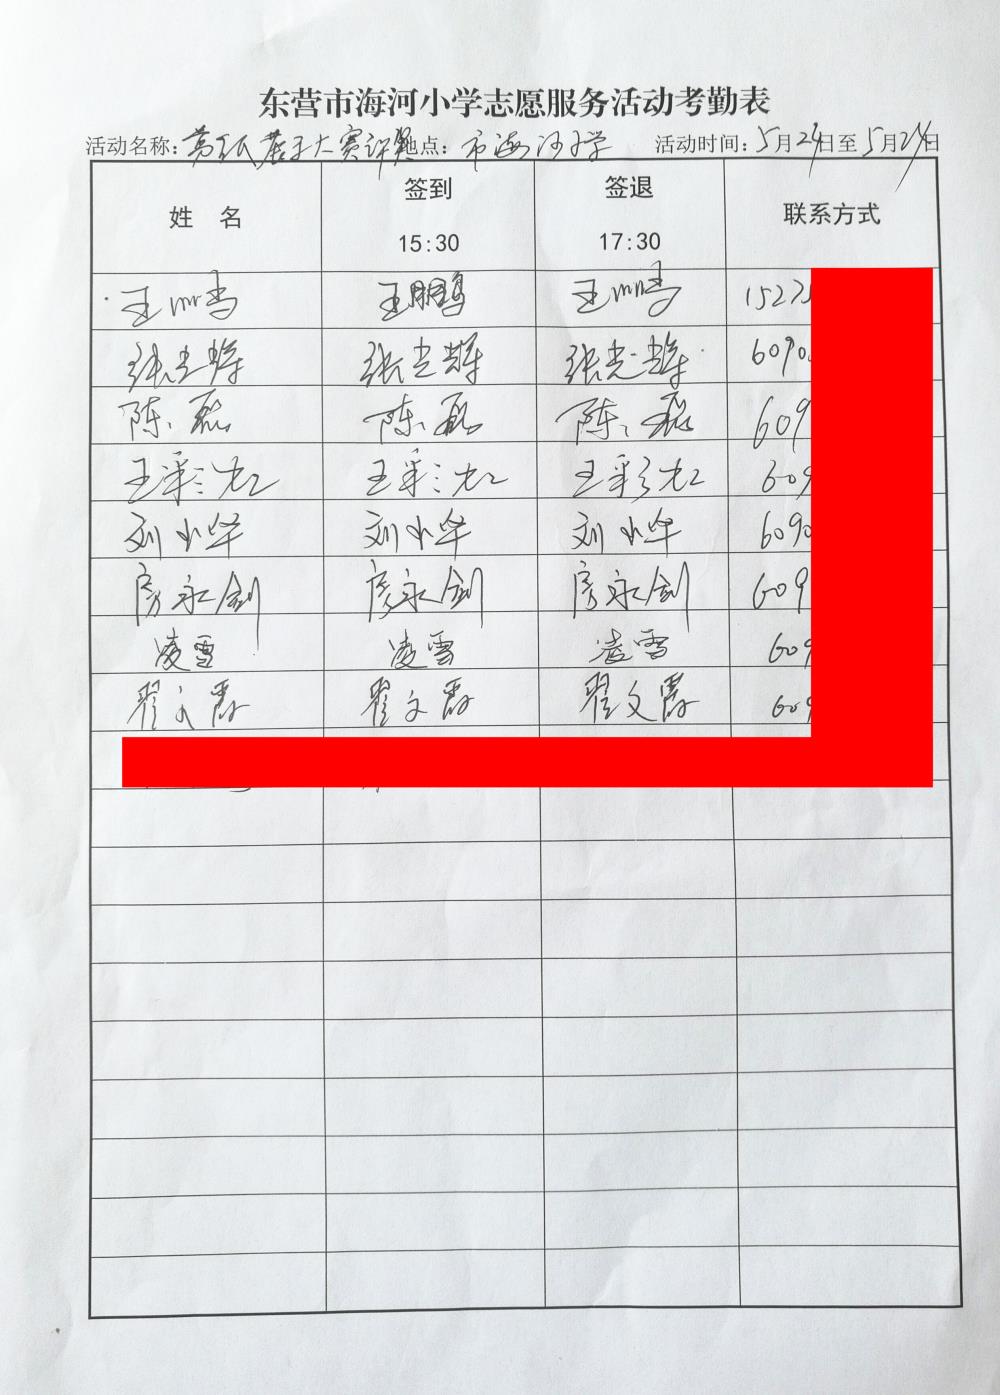 东营市海河小学志愿服务活动考勤表
活动名称： 大赛 地点：市海河小学 活动时间：5月24日至5月24日
姓 名 签到 15:30 签退 17:30 联系方式
王鹏 王鹏 王鹏 1527
张光辉 张光辉 张光辉 6090
陈磊 陈磊 陈磊 609
王彩虹 王彩虹 王彩虹 609
刘小华 刘小华 刘小华 6090
房永剑 房永剑 房永剑 609
凌雪 凌雪 凌雪 609
翟文霞 翟文霞 翟文霞 609